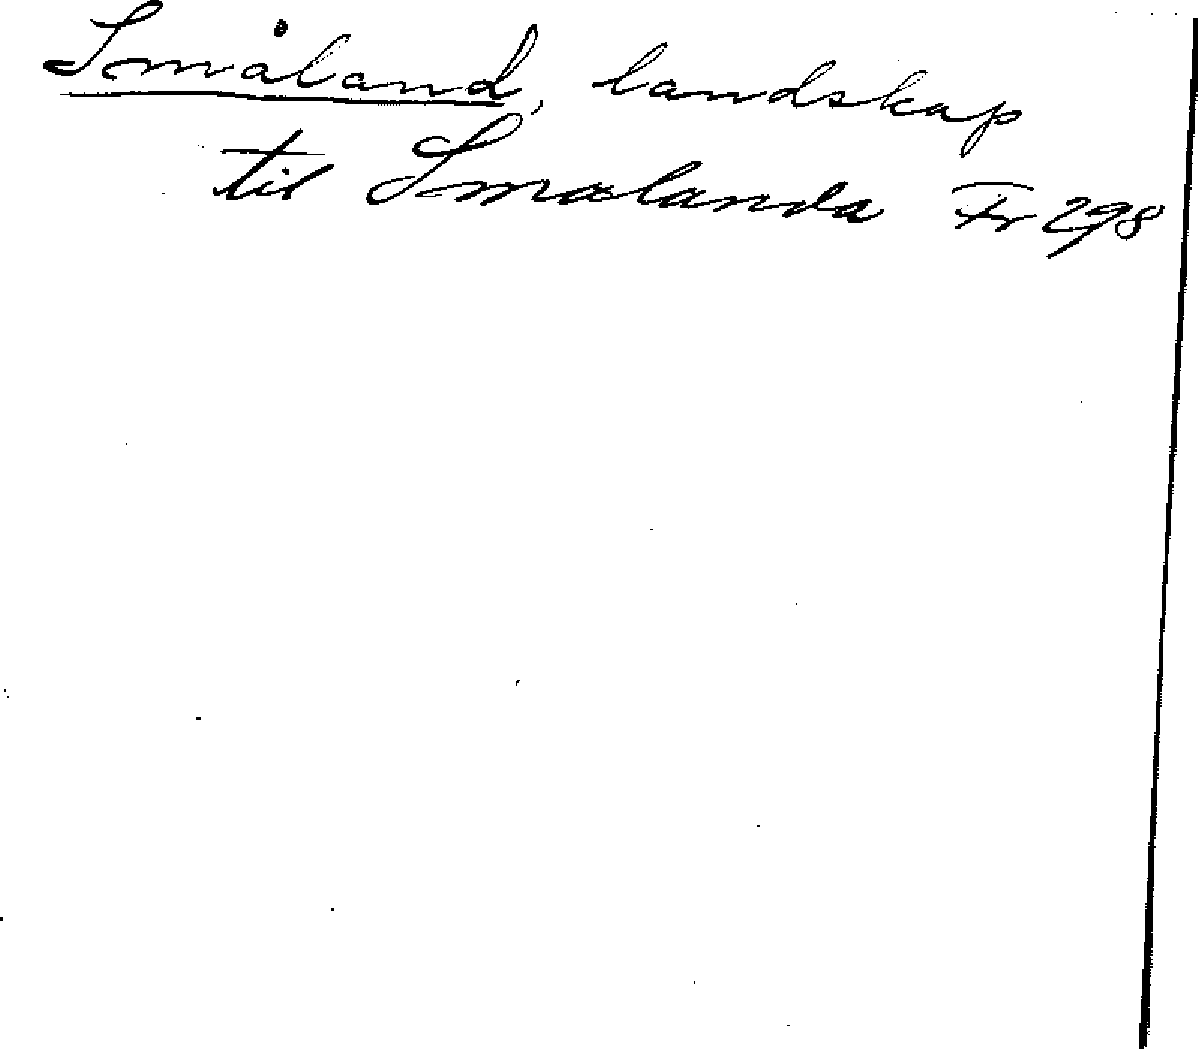 Småland, landskap
til Smalanda Fr 298